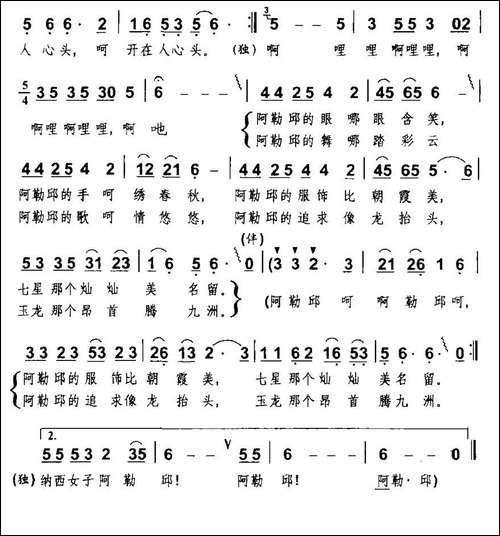 5 6 6 · 2 | 1 6 5 3 5 6 · :‖ 5 - - 5 | 3 5 5 3 0 2 |
人 心 头, 呵 开 在 人 心 头。 (独) 啊 哩 哩 啊哩哩, 啊
5/4 3 5 3 5 3 5 3 0 5 | 6 - - - | 4 4 2 5 4 2 | 4 5 6 5 6 - |
啊哩 啊哩哩, 啊 吔,
阿勒邱的眼 哪 眼 含 笑,
阿勒邱的舞 哪 踏 彩 云
4 4 2 5 4 2 | 1 2 2 1 6 - | 4 4 2 5 4 2 | 4 5 6 5 5 · 6 |
阿勒邱的手 呵 绣 春 秋, 阿勒邱的服饰 比 朝 霞 美,
阿勒邱的歌 呵 情 悠 悠, 阿勒邱的追求 像 龙 抬 头,
(伴)
5 3 3 5 3 1 2 3 | 5 · 6 - 0 | (3 3 2 · 3 | 2 1 2 6 1 6 |
七星 那个 灿 灿 美 名 留。
玉龙 那个 昂 首 腾 九 洲。
(阿 勒 邱 呵 啊 勒 邱 呵,
3 3 2 3 5 3 2 3 | 2 6 1 3 2 · 3 | 1 1 6 2 1 6 5 3 | 5 6 · 6 · 0 :‖
阿勒 邱的 服 饰比 朝 霞 美, 七星 那个 灿 灿 美 名 留。
阿勒 邱的 追 求像 龙 抬 头, 玉龙 那个 昂 首 腾 九 洲。
2.
5 5 5 3 2 3 5 | 6 - - | 5 5 6 - - | 5 5 | 6 - - 0 ‖
(独) 纳西女子 阿 勒 邱! 阿勒 邱! 阿勒 · 邱)